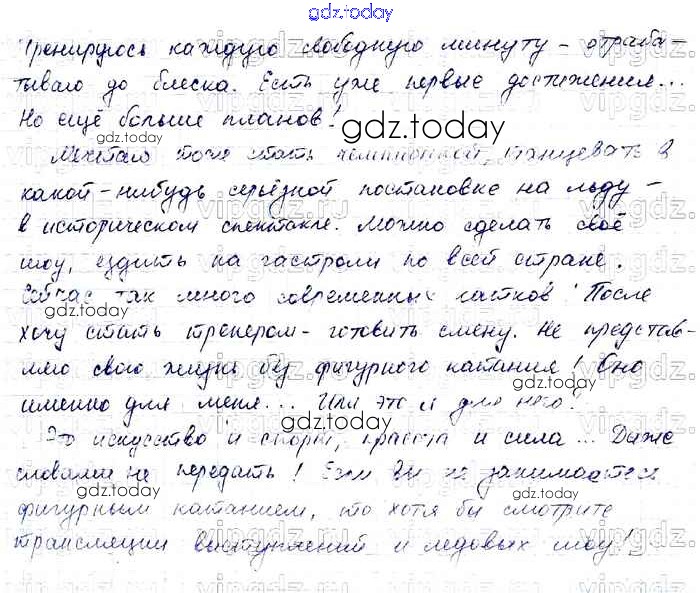 gdz.today
Тренируюсь каждую свободную минуту – отраба-
тываю до блеска. Есть уже первые достижения...
Но ещё больше планов!
gdz.today
Мечтаю тоже стать чемпионкой, танцевать в
какой-нибудь серьёзной постановке на льду –
в историческом спектакле. Можно сделать своё
шоу, ездить на гастроли по всей стране.
Сейчас так много современных катков! После
gdz.today
хочу стать тренером – готовить смену. Не представ-
ляю свою жизнь без фигурного катания! Оно
gdz.today
именно для меня... Или это я для него?
gdz.today
Это искусство и спорт, красота и сила... Даже
словами не передать! Если вы не занимаетесь
gdz.today
фигурным катанием, то хотя бы смотрите
gdz.today
трансляции выступлений и ледовых шоу!